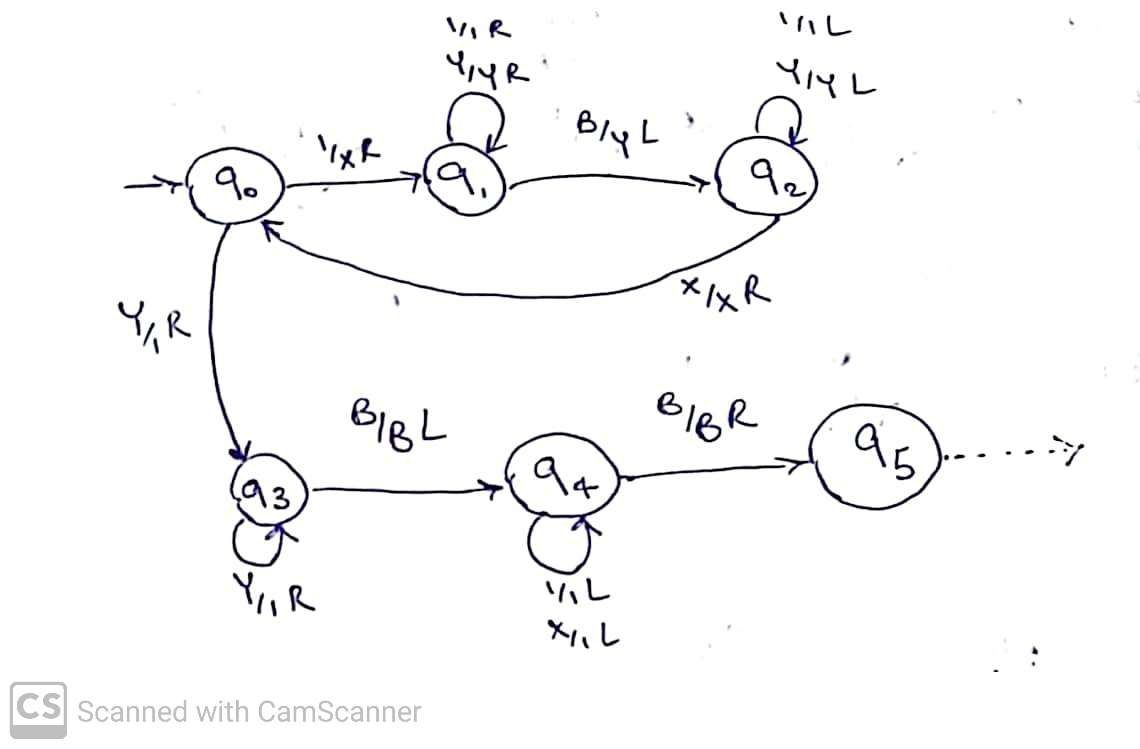 1/1 R
Y/Y R
1/1 L
Y/Y L
q0
1/X R
q1
B/Y L
q2
X/X R
Y/1 R
B/B L
B/B R
q3
q4
q5
Y/1 R
1/1 L
X/1 L
CS Scanned with CamScanner